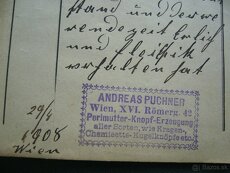 stand und der we
rendezeit Erlich
und Fleißik
verhalten hat
29/4
1908
Wien
ANDREAS PUCHNER
Wien, XVI. Römerg. 42
Perlmutter-Knopf-Erzeugung
aller Sorten, wie Kragen,
Chemisette-Kugelknöpfe etc.